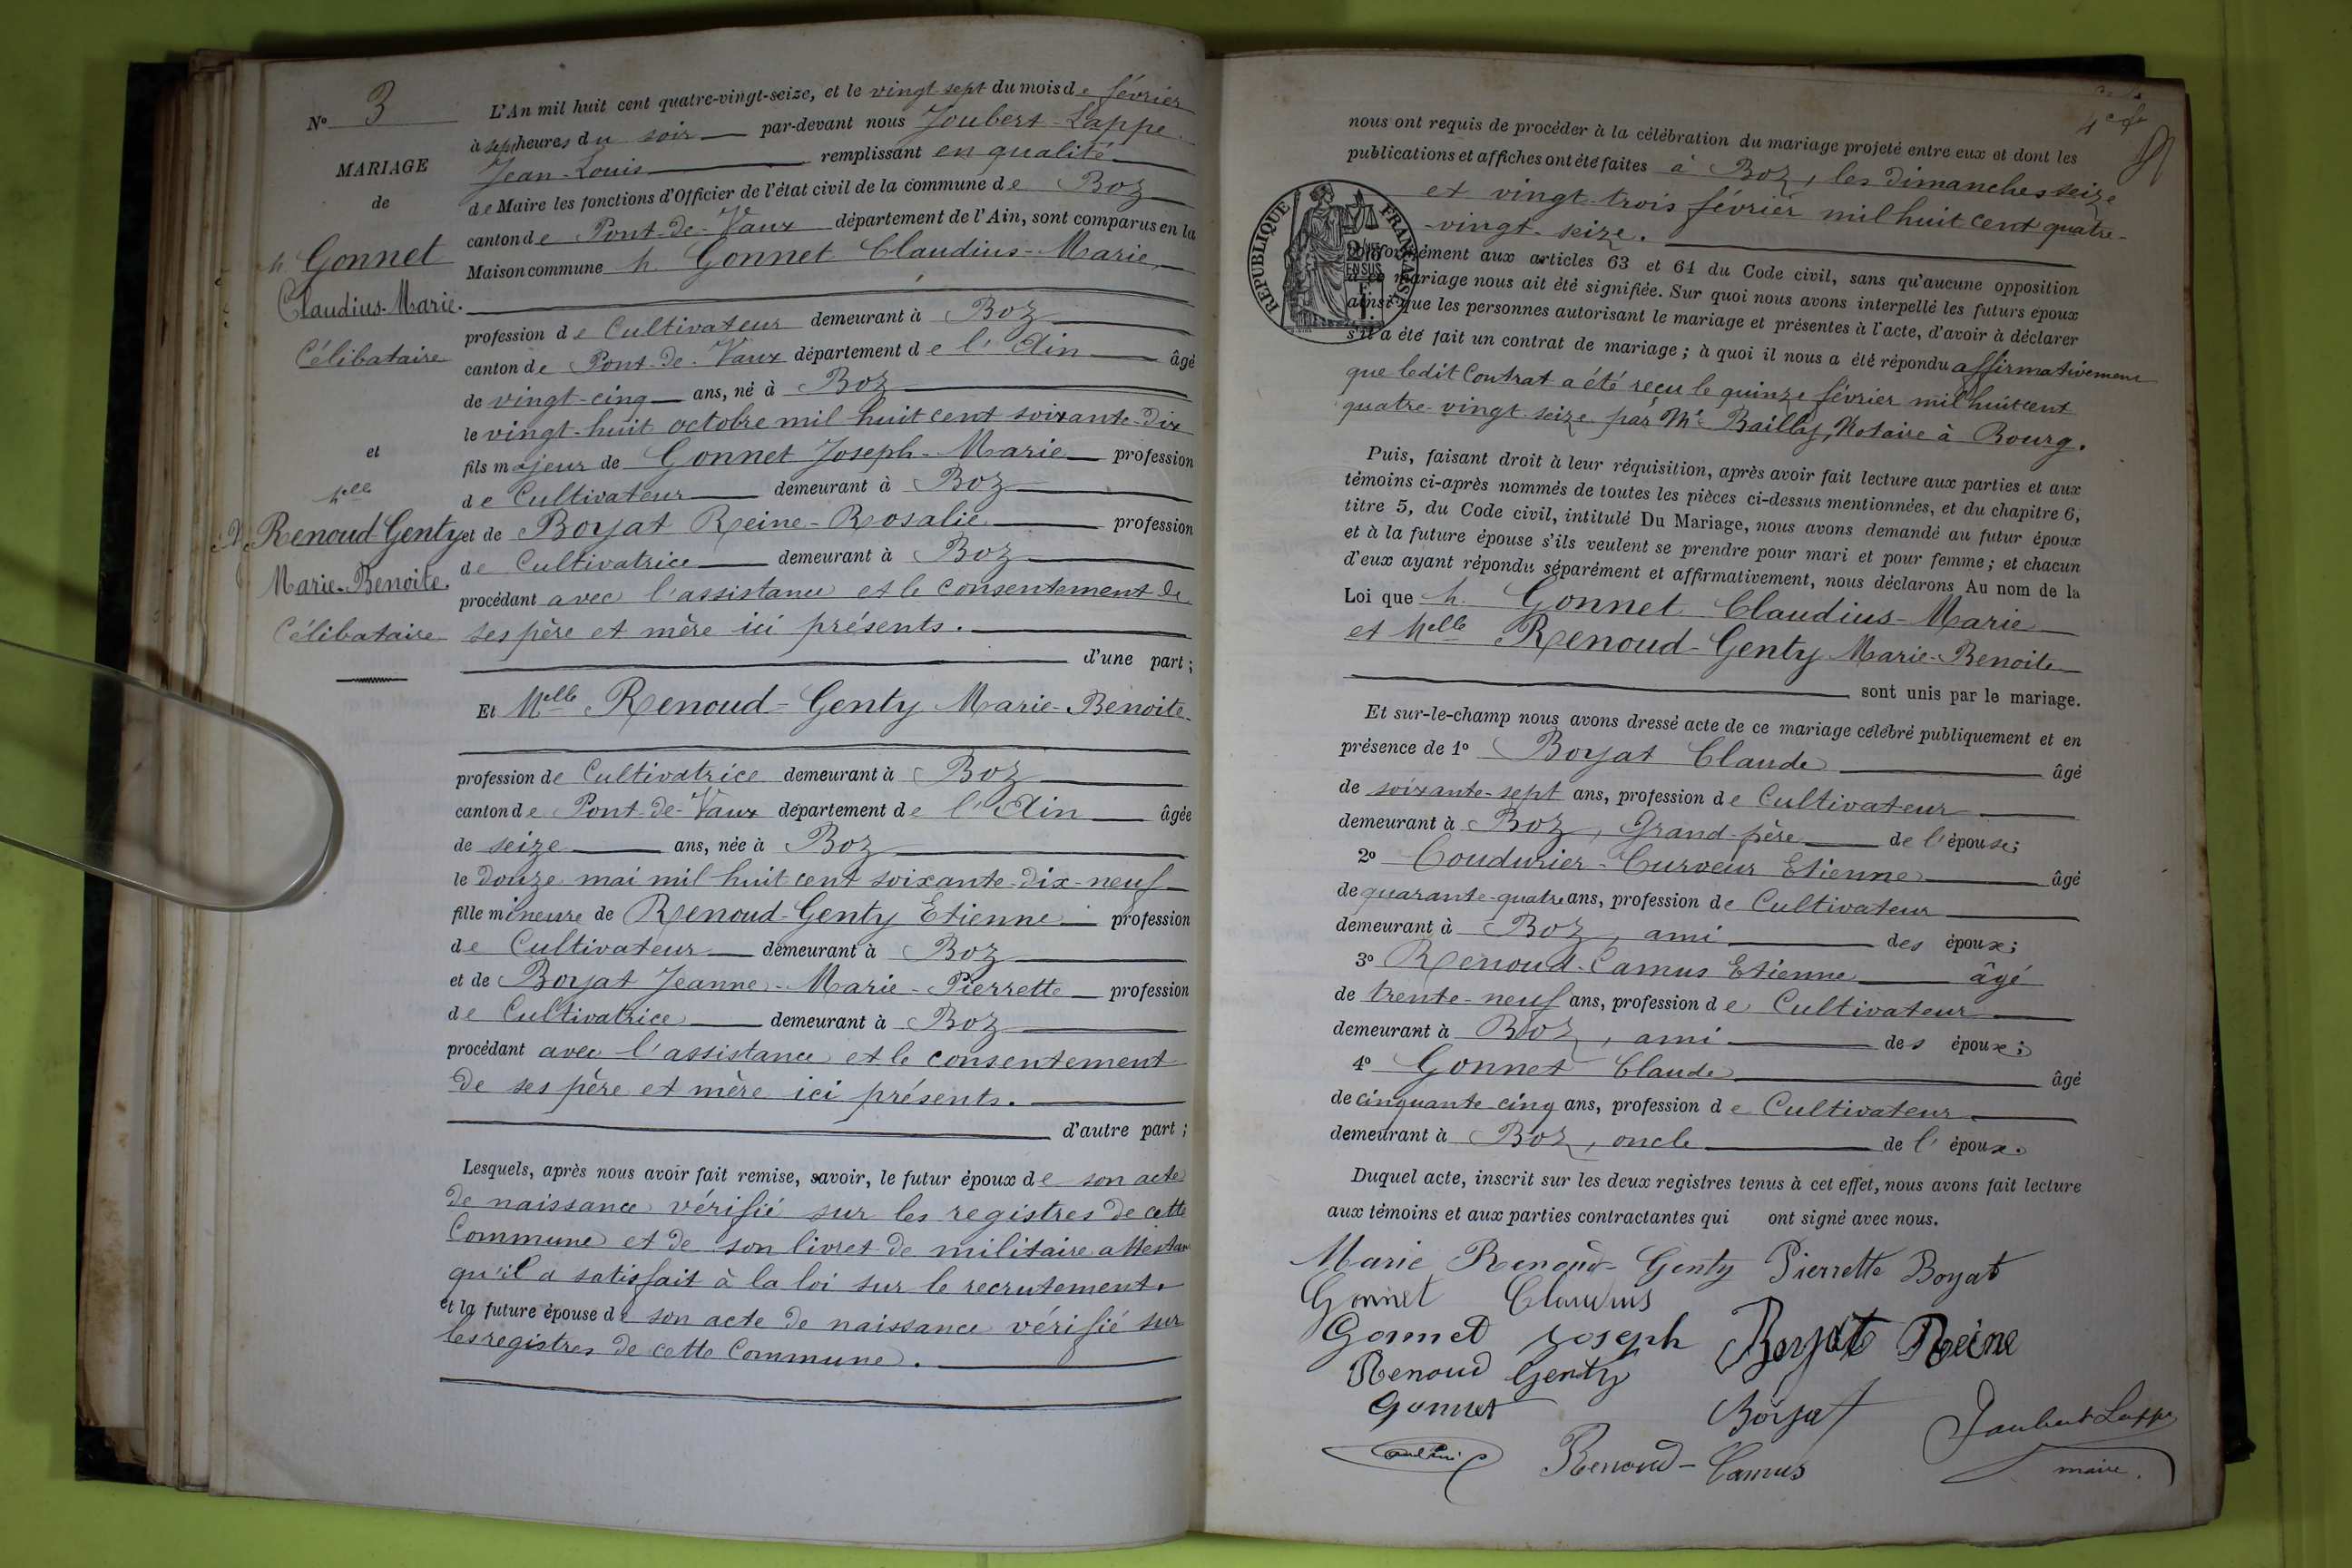 N° 3
MARIAGE
de
h Gonnet
Claudius-Marie.
Célibataire
et
Melle
Renoud-Genty
Marie-Benoite.
Célibataire
L'An mil huit cent quatre-vingt-seize, et le vingt sept du mois de février
à sept heures du soir par-devant nous Joubert-Lappe
Jean-Louis remplissant en qualité
de Maire les fonctions d'Officier de l'état civil de la commune de Boz
canton de Pont-de-Vaux département de l'Ain, sont comparus en la
Maison commune h Gonnet Claudius-Marie
profession de Cultivateur demeurant à Boz
canton de Pont-de-Vaux département de l'Ain âgé
de vingt-cinq ans, né à Boz
le vingt-huit octobre mil huit cent soixante-dix
fils majeur de Gonnet Joseph-Marie profession
de Cultivateur demeurant à Boz
et de Boyat Reine-Rosalie profession
de Cultivatrice demeurant à Boz
procédant avec l'assistance et le consentement de
ses père et mère ici présents.
d'une part;
Et Melle Renoud-Genty Marie-Benoite
profession de Cultivatrice demeurant à Boz
canton de Pont-de-Vaux département de l'Ain âgée
de seize ans, née à Boz
le douze mai mil huit cent soixante-dix-neuf
fille mineure de Renoud-Genty Etienne profession
de Cultivateur demeurant à Boz
et de Boyat Jeanne-Marie-Pierrette profession
de Cultivatrice demeurant à Boz
procédant avec l'assistance et le consentement
de ses père et mère ici présents.
d'autre part;
Lesquels, après nous avoir fait remise, savoir, le futur époux de son acte
de naissance vérifié sur les registres de cette
Commune et de son livret de militaire attestant
qu'il a satisfait à la loi sur le recrutement.
et la future épouse de son acte de naissance vérifié sur
les registres de cette Commune.
nous ont requis de procéder à la célébration du mariage projeté entre eux et dont les
publications et affiches ont été faites à Boz, les dimanches seize
et vingt-trois février mil huit cent quatre-
-vingt-seize.
RÉPUBLIQUE FRANÇAISE
Conformément aux articles 63 et 64 du Code civil, sans qu'aucune opposition
à ce mariage nous ait été signifiée. Sur quoi nous avons interpellé les futurs époux
ainsi que les personnes autorisant le mariage et présentes à l'acte, d'avoir à déclarer
s'il a été fait un contrat de mariage; à quoi il nous a été répondu affirmativement
que ledit Contrat a été reçu le quinze février mil huit cent
quatre-vingt-seize par Me Bailly, Notaire à Bourg.
Puis, faisant droit à leur réquisition, après avoir fait lecture aux parties et aux
témoins ci-après nommés de toutes les pièces ci-dessus mentionnées, et du chapitre 6,
titre 5, du Code civil, intitulé Du Mariage, nous avons demandé au futur époux
et à la future épouse s'ils veulent se prendre pour mari et pour femme; et chacun
d'eux ayant répondu séparément et affirmativement, nous déclarons Au nom de la
Loi que h. Gonnet Claudius-Marie
et Melle Renoud-Genty Marie-Benoite
sont unis par le mariage.
Et sur-le-champ nous avons dressé acte de ce mariage célébré publiquement et en
présence de 1° Boyat Claude âgé
de soixante-sept ans, profession de Cultivateur
demeurant à Boz, Grand-père de l'épouse;
2° Coudurier-Curveur Etienne âgé
de quarante-quatre ans, profession de Cultivateur
demeurant à Boz, ami des époux;
3° Renoud-Camus Etienne âgé
de trente-neuf ans, profession de Cultivateur
demeurant à Boz, ami des époux;
4° Gonnet Claude âgé
de cinquante-cinq ans, profession de Cultivateur
demeurant à Boz, oncle de l'époux.
Duquel acte, inscrit sur les deux registres tenus à cet effet, nous avons fait lecture
aux témoins et aux parties contractantes qui ont signé avec nous.
Marie Renoud-Genty Pierrette Boyat
Gonnet Claudius
Gonnet Joseph Boyat Reine
Renoud Genty
Gonnet Boyat
Renoud-Camus Joubert Lappe
maire.